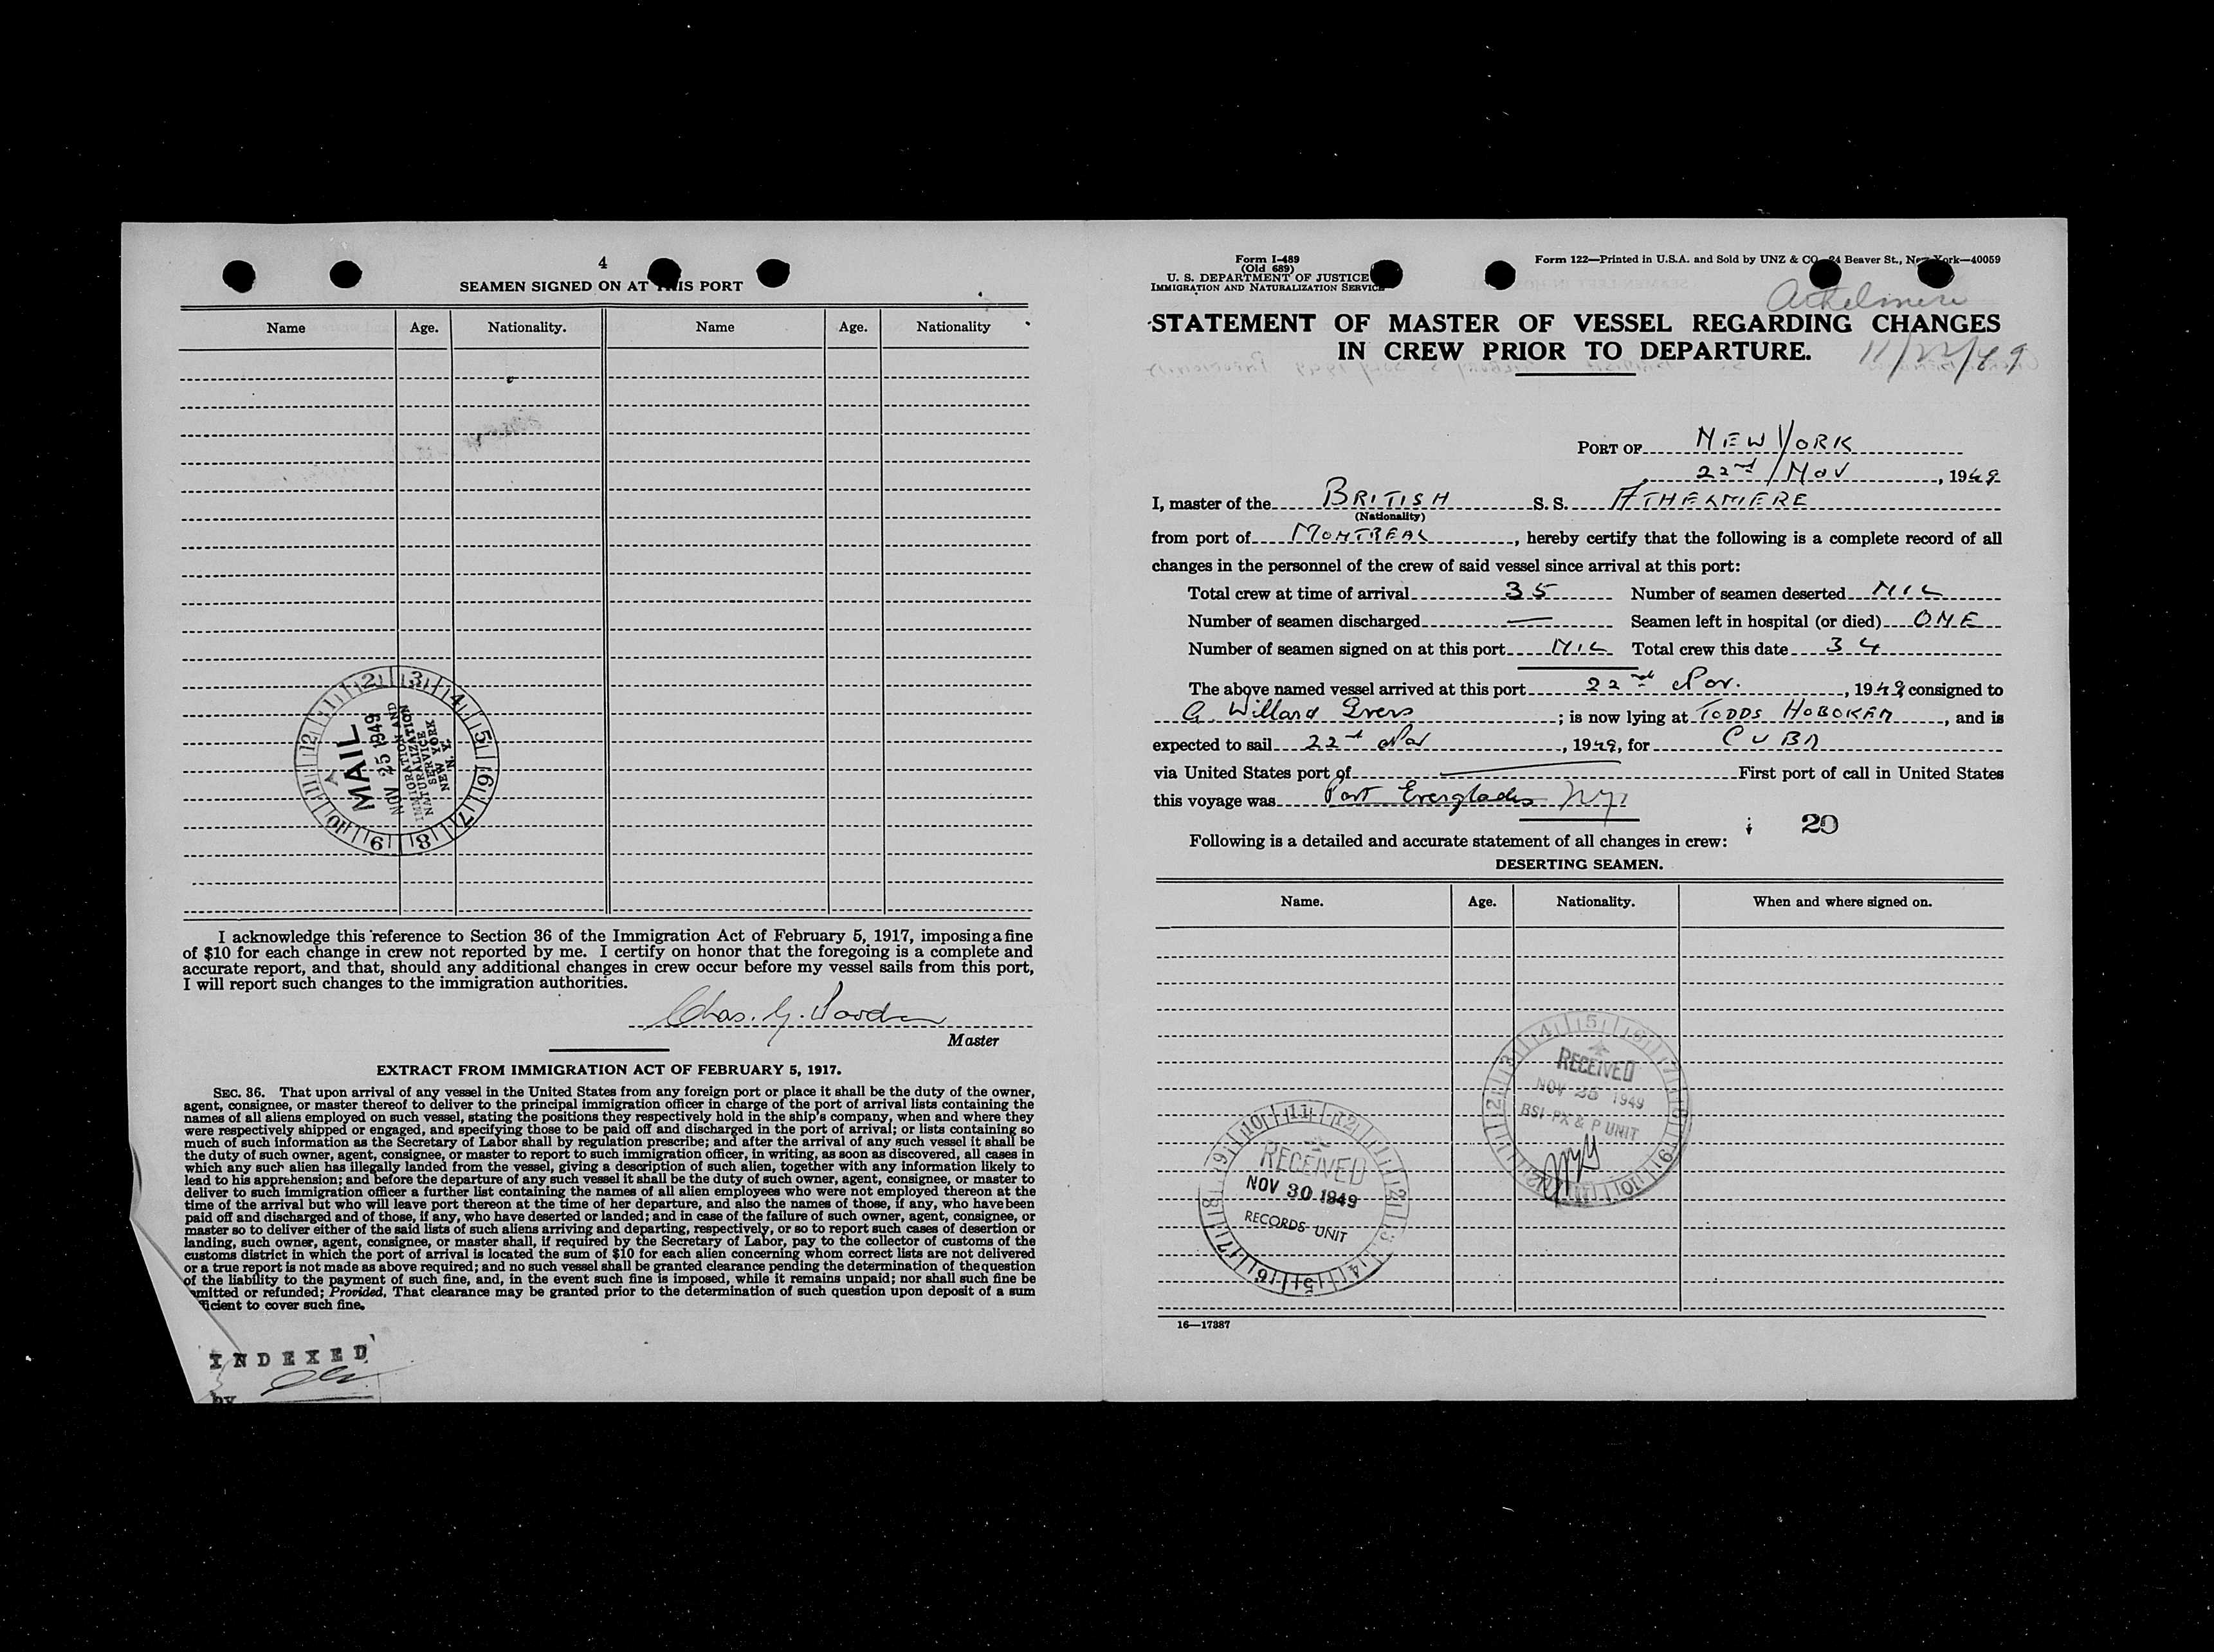 4
SEAMEN SIGNED ON AT THIS PORT
Name Age. Nationality. Name Age. Nationality
MAIL
NOV 25 1949
IMMIGRATION AND
NATURALIZATION
SERVICE
NEW YORK
N. Y.
I acknowledge this reference to Section 36 of the Immigration Act of February 5, 1917, imposing a fine
of $10 for each change in crew not reported by me. I certify on honor that the foregoing is a complete and
accurate report, and that, should any additional changes in crew occur before my vessel sails from this port,
I will report such changes to the immigration authorities.
Chas. G.
Master
EXTRACT FROM IMMIGRATION ACT OF FEBRUARY 5, 1917.
SEC. 36. That upon arrival of any vessel in the United States from any foreign port or place it shall be the duty of the owner,
agent, consignee, or master thereof to deliver to the principal immigration officer in charge of the port of arrival lists containing the
names of all aliens employed on such vessel, stating the positions they respectively hold in the ship's company, when and where they
were respectively shipped or engaged, and specifying those to be paid off and discharged in the port of arrival; or lists containing so
much of such information as the Secretary of Labor shall by regulation prescribe; and after the arrival of any such vessel it shall be
the duty of such owner, agent, consignee, or master to report to such immigration officer, in writing, as soon as discovered, all cases in
which any such alien has illegally landed from the vessel, giving a description of such alien, together with any information likely to
lead to his apprehension; and before the departure of any such vessel it shall be the duty of such owner, agent, consignee, or master to
deliver to such immigration officer a further list containing the names of all alien employees who were not employed thereon at the
time of the arrival but who will leave port thereon at the time of her departure, and also the names of those, if any, who have been
paid off and discharged and of those, if any, who have deserted or landed; and in case of the failure of such owner, agent, consignee, or
master so to deliver either of the said lists of such aliens arriving and departing, respectively, or so to report such cases of desertion or
landing, such owner, agent, consignee, or master shall, if required by the Secretary of Labor, pay to the collector of customs of the
customs district in which the port of arrival is located the sum of $10 for each alien concerning whom correct lists are not delivered
or a true report is not made as above required; and no such vessel shall be granted clearance pending the determination of the question
of the liability to the payment of such fine, and, in the event such fine is imposed, while it remains unpaid; nor shall such fine be
omitted or refunded; Provided, That clearance may be granted prior to the determination of such question upon deposit of a sum
ficient to cover such fine.
INDEXED
by
Form I-489
(Old 689)
U. S. DEPARTMENT OF JUSTICE
IMMIGRATION AND NATURALIZATION SERVICE
Form 122—Printed in U.S.A. and Sold by UNZ & CO., 24 Beaver St., New York—40059
Athelmere
STATEMENT OF MASTER OF VESSEL REGARDING CHANGES
IN CREW PRIOR TO DEPARTURE.
11/22/49
PORT OF NEW YORK
22nd / Nov, 1949
I, master of the BRITISH S. S. ATHELMERE
(Nationality)
from port of MONTREAL, hereby certify that the following is a complete record of all
changes in the personnel of the crew of said vessel since arrival at this port:
Total crew at time of arrival 35 Number of seamen deserted NIL
Number of seamen discharged — Seamen left in hospital (or died) ONE
Number of seamen signed on at this port NIL Total crew this date 34
The above named vessel arrived at this port 22nd Nov., 1949 consigned to
G. Willard Ivers; is now lying at TODDS HOBOKEN, and is
expected to sail 22nd Nov, 1949, for CUBA
via United States port of — First port of call in United States
this voyage was Port Everglades NY
20
Following is a detailed and accurate statement of all changes in crew:
DESERTING SEAMEN.
Name. Age. Nationality. When and where signed on.
RECEIVED
NOV 25 1949
BSI-PX & P UNIT
RECEIVED
NOV 30 1949
RECORDS UNIT
16—17387